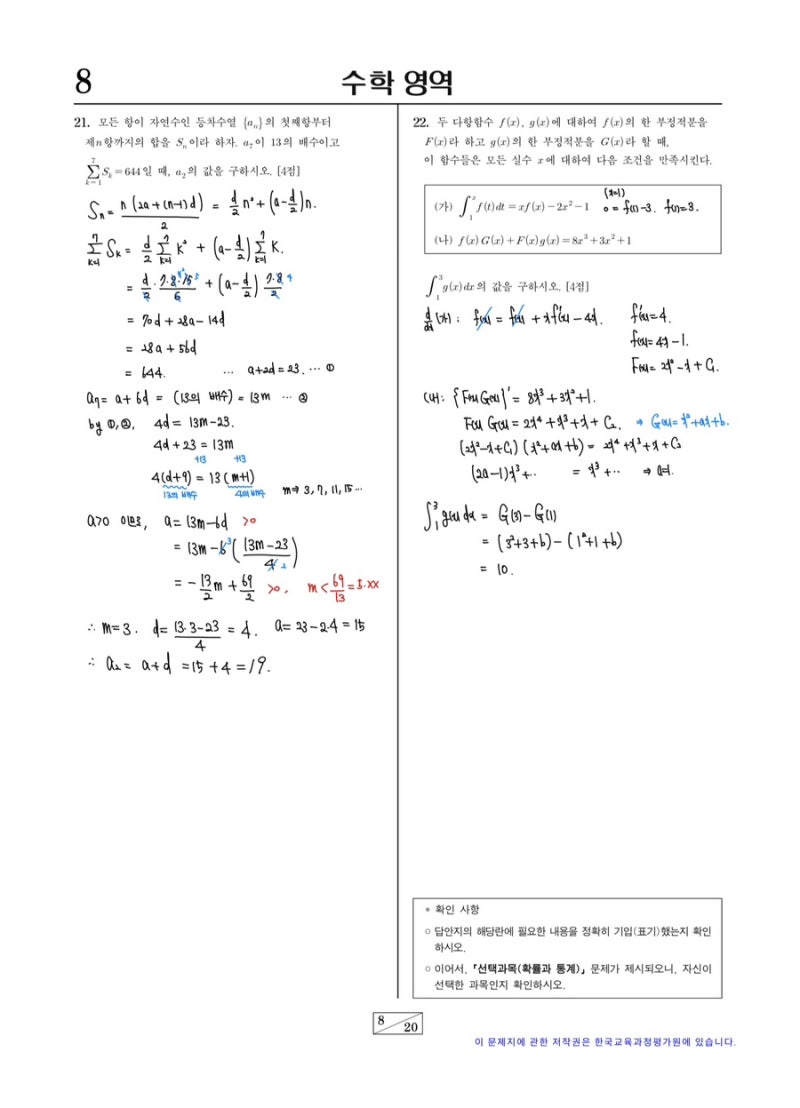 8
수학 영역
21. 모든 항이 자연수인 등차수열 {aₙ}의 첫째항부터
제n항까지의 합을 Sₙ이라 하자. a₇이 13의 배수이고
∑_{k=1}^{7} Sₖ = 644일 때, a₂의 값을 구하시오. [4점]
Sₙ = n(2a+(n-1)d)/2 = d/2 n² + (a-d/2)n.
∑_{k=1}^{7} Sₖ = d/2 ∑_{k=1}^{7} k² + (a-d/2) ∑_{k=1}^{7} k.
= d/2 · 7·8·15/6 + (a-d/2) 7·8/2
= 70d + 28a - 14d
= 28a + 56d
= 644. ... a+2d=23. ... ①
a₇ = a+6d = (13의 배수) = 13m ... ②
by ①,②, 4d = 13m-23.
4d+23 = 13m
+13 +13
4(d+9) = 13(m+1)
13의 배수 4의 배수 m⇒ 3, 7, 11, 15 ...
a>0 이므로, a = 13m-6d >0
= 13m - 6((13m-23)/4)
= -13/2 m + 69/2 >0, m < 69/13 = 5.xx
∴ m=3. d = (13·3-23)/4 = 4. a = 23-2·4 = 15
∴ a₂ = a+d = 15+4 = 19.
22. 두 다항함수 f(x), g(x)에 대하여 f(x)의 한 부정적분을
F(x)라 하고 g(x)의 한 부정적분을 G(x)라 할 때,
이 함수들은 모든 실수 x에 대하여 다음 조건을 만족시킨다.
(가) ∫₁ˣ f(t)dt = xf(x)-2x²-1 (x=1) 0 = f(1)-3. f(1)=3.
(나) f(x)G(x)+F(x)g(x) = 8x³+3x²+1
∫₁³ g(x)dx의 값을 구하시오. [4점]
d/dx (가) : f(x) = f(x) + xf'(x) - 4x. f'(x)=4.
f(x)=4x-1.
F(x)=2x²-x+C₁.
(나) : {F(x)G(x)}' = 8x³+3x²+1.
F(x)G(x) = 2x⁴+x³+x+C₂. ⇒ G(x)=x²+ax+b.
(2x²-x+C₁)(x²+ax+b) = 2x⁴+x³+x+C₂
(2a-1)x³+.. = x³+.. ⇒ a=1.
∫₁³ g(x)dx = G(3)-G(1)
= (3²+3+b)-(1²+1+b)
= 10.
* 확인 사항
○ 답안지의 해당란에 필요한 내용을 정확히 기입(표기)했는지 확인
하시오.
○ 이어서, 「선택과목(확률과 통계)」 문제가 제시되오니, 자신이
선택한 과목인지 확인하시오.
8
20
이 문제지에 관한 저작권은 한국교육과정평가원에 있습니다.